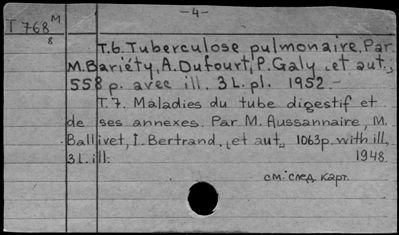 -4-
T 768 M
8
T.6. Tuberculose pulmonaire. Par
M. Bariéty, A. Dufourt, P. Galy [et aut.]
558 p. avec ill. 3 L. pl. 1952.-
T.7. Maladies du tube digestif et
de ses annexes. Par M. Aussannaire, M.
Ballivet, I. Bertrand, [et aut.] 1063p. with ill,
3 L. ill. 1948.
см. след. карт.